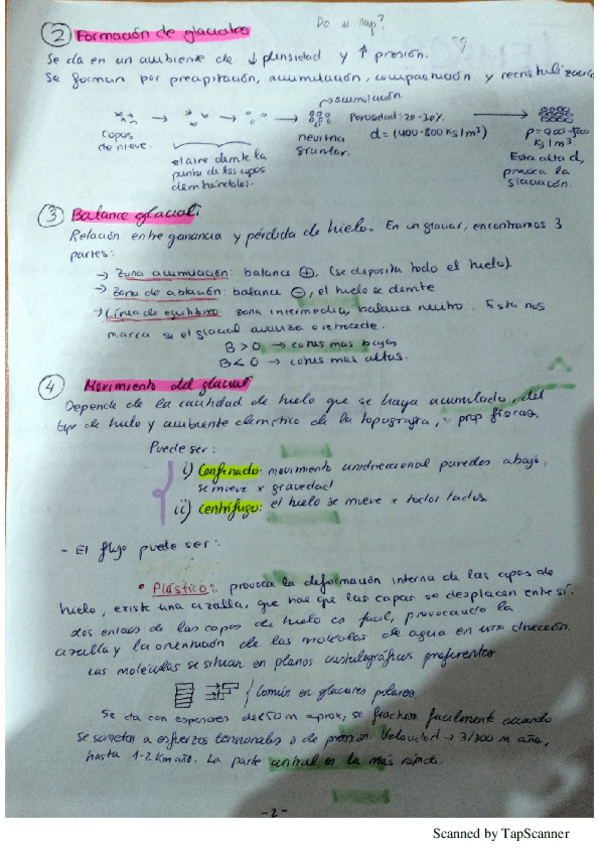 ② Formación de glaciares
Se da en un ambiente de ↓ densidad y ↑ presión.
Se forman por precipitación, acumulación, compactación y recristalización
acumulación
copos de nieve.
el aire derrite la punta de los copos
nevitna granular.
Porosidad: 20-30%
d = (400-800 Kg/m³)
Kg/m³
Esta alta d, provoca la
③ Balance glacial:
Relación entre ganancia y pérdida de hielo. En un glaciar, encontramos 3
partes:
→ Zona acumulación: balance ⊕. (se deposita todo el hielo).
→ Zona de ablación: balance ⊖, el hielo se derrite
→ Línea de equilibrio: zona intermedia, balance neutro. Esta nos
marca si el glacial avanza o retrocede.
B > 0 → cotas mas bajas
B < 0 → cotas mas altas.
④ Movimiento del glacial
Depende de la cantidad de hielo que se haya acumulado, del
tipo de hielo y ambiente climático de la topografía, y prop físicas.
Puede ser:
i) Confinado: movimiento unidireccional paredes abajo,
se mueve x gravedad
ii) Centrífugo: el hielo se mueve x todos lados.
- El flujo puede ser:
• Plástico: provoca la deformación interna de las capas de
hielo, existe una cizalla, que hace que las capas se desplacen entre sí.
Los enlaces de las capas de hielo es fácil, provocando la
cizalla y la orientación de las moléculas de agua en una dirección.
Las moléculas se situan en planos cristalográficos preferentes
Común en glaciares polares.
Se da con espesores de 50 m aprox, se fractura facilmente cuando
se someten a esfuerzos tensionales o de presión. Velocidad → 3/300 m año,
hasta 1-2 Km año. La parte central es la más rápida.
-2-
Scanned by TapScanner